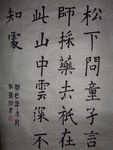 松下問童子言
師採藥去祇在
此山中雲深不
知處
癸巳年冬月